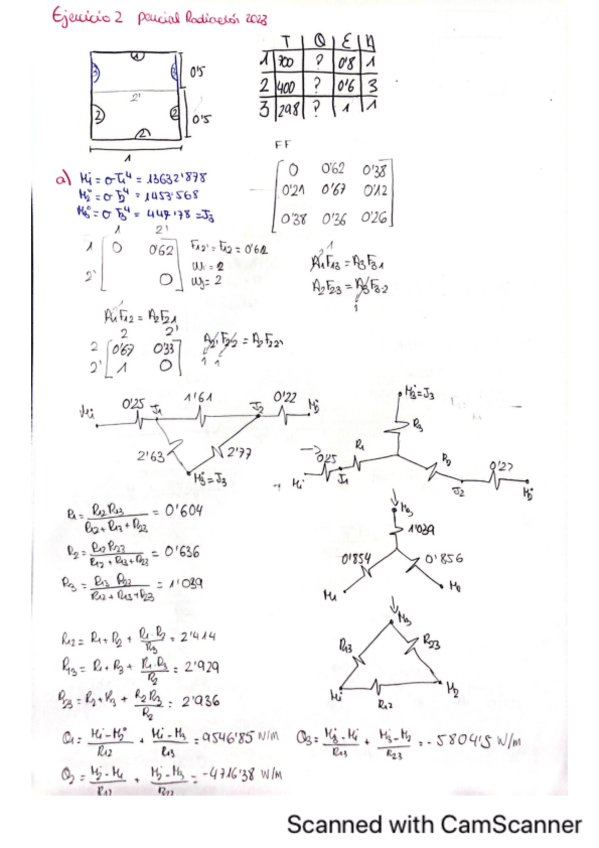 Ejercicio 2 parcial Radiación 2023
T Q ε A
1 700 ? 0'8 1
2 400 ? 0'6 3
3 298 ? 1 1
1
2'
0'5
0'5
2
2
2
1
FF
0 0'62 0'38
0'21 0'67 0'12
0'38 0'36 0'26
a) M₁° = σT₁⁴ = 13632'878
M₂° = σT₂⁴ = 1453'568
M₃° = σT₃⁴ = 447'78 = J₃
1 2'
1 0 0'62
2' 0
F₁₂' = F₁₂ = 0'62
= 2
= 2
A₁F₁₃ = A₃F₃₁
A₂F₂₃ = A₃F₃₂
1
1
A₁F₁₂ = A₂F₂₁
2 2'
2 0'67 0'33
2' 1 0
1 1
M₁° 0'25 J₁ 1'61 J₂ 0'22 M₂°
2'63 2'77
M₃° = J₃
M₃° = J₃
R₃
M₁° 0'25 J₁ R₁ R₂ J₂ 0'22 M₂°
R₁ = R₁₂ R₁₃ / R₁₂ + R₁₃ + R₂₃ = 0'604
R₂ = R₁₂ R₂₃ / R₁₂ + R₁₃ + R₂₃ = 0'636
R₃ = R₁₃ R₂₃ / R₁₂ + R₁₃ + R₂₃ = 1'039
M₃
1'039
0'854 0'856
M₁ M₂
R₁₂ = R₁ + R₂ + R₁·R₂ / R₃ = 2'414
R₁₃ = R₁ + R₃ + R₁·R₃ / R₂ = 2'929
R₂₃ = R₂ + R₃ + R₂R₃ / R₂ = 2'936
M₃
R₁₃ R₂₃
M₁ R₁₂ M₂
Q₁ = M₁° - M₂° / R₁₂ + M₁ - M₃ / R₁₃ = 9546'85 W/m
Q₃ = M₃ - M₁ / R₁₃ + M₃ - M₂ / R₂₃ = -5804'5 W/m
Q₂ = M₂ - M₁ / R₁₂ + M₂ - M₃ = -4716'38 W/m
Scanned with CamScanner